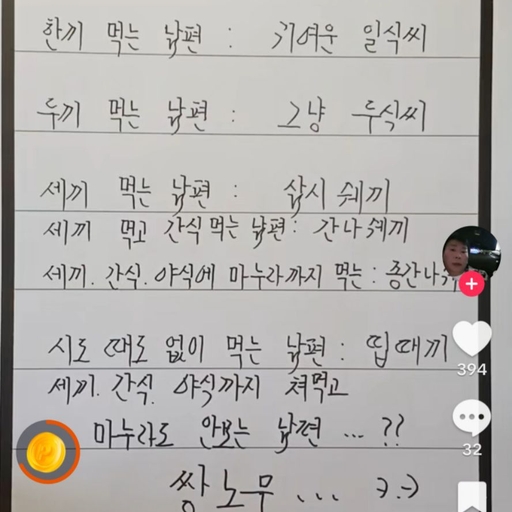 한끼 먹는 남편 : 귀여운 일식씨
두끼 먹는 남편 : 그냥 두식씨
세끼 먹는 남편 : 삼시 쉐끼
세끼 먹고 간식 먹는 남편 : 간나 쉐끼
세끼. 간식. 야식에 마누라까지 먹는 : 종간나
시도 때도 없이 먹는 남편 : 띱때끼
세끼. 간식. 야식까지 쳐먹고
마누라도 안보는 남편 ... ??
쌍노무 ...
394
32